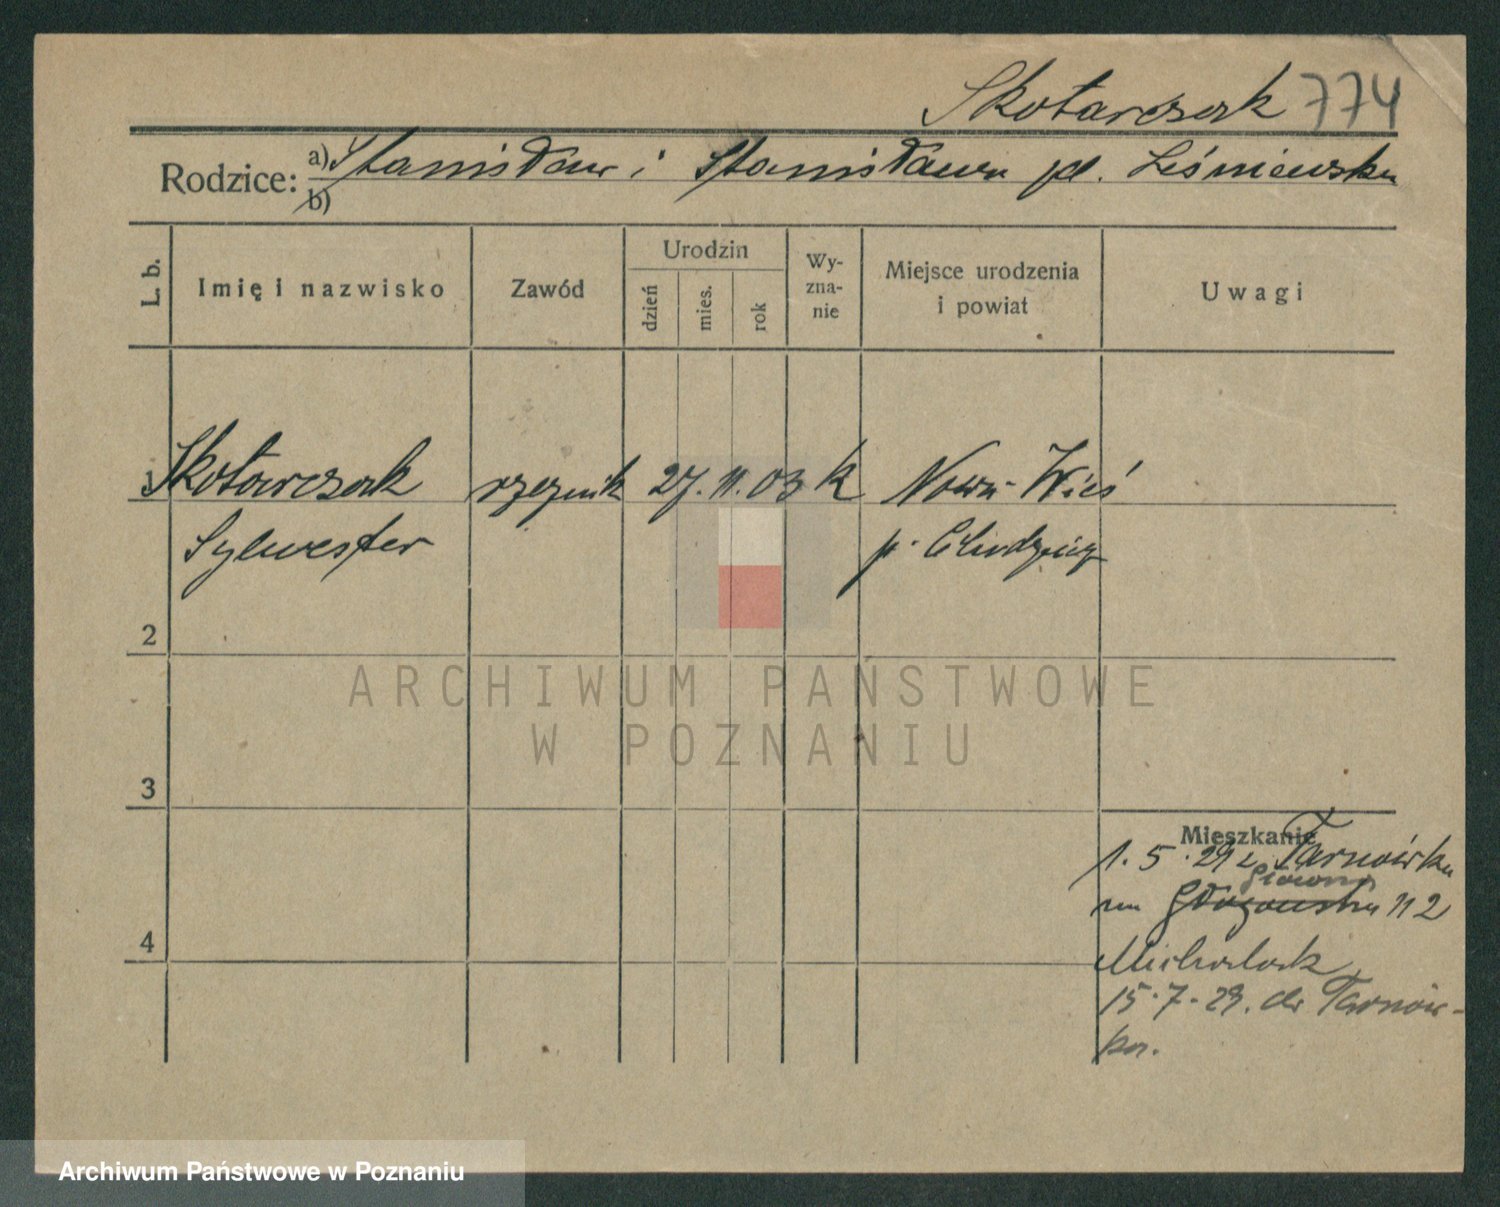 Skotarczak 774
Rodzice: a) Stanisław i Stanisława pd. Leśniewska
b)
L. b.
Imię i nazwisko
Zawód
Urodzin
dzień
mies.
rok
Wy-
zna-
nie
Miejsce urodzenia
i powiat
Uwagi
1 Skotarczak rzeznik 27. 11. 03 k Nowa-Wieś
Sylwester p. Chodzież
2
3
Mieszkanie
1. 5. 29 z Tarnówka
Główna
na 2
4
Michalak
15. 7. 29. do Tarnów-
ka.
ARCHIWUM PAŃSTWOWE
W POZNANIU
Archiwum Państwowe w Poznaniu